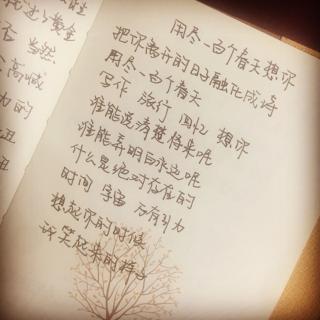 用尽一百个春天想你
把你离开的日子融化成诗
用尽一百个春天
写作 旅行 回忆 想你
谁能说清楚将来呢
谁能弄明白永远呢
什么是绝对存在的
时间 宇宙 万有引力
想起你的时候
我笑起来的样子
当然
高喊
力的
丑